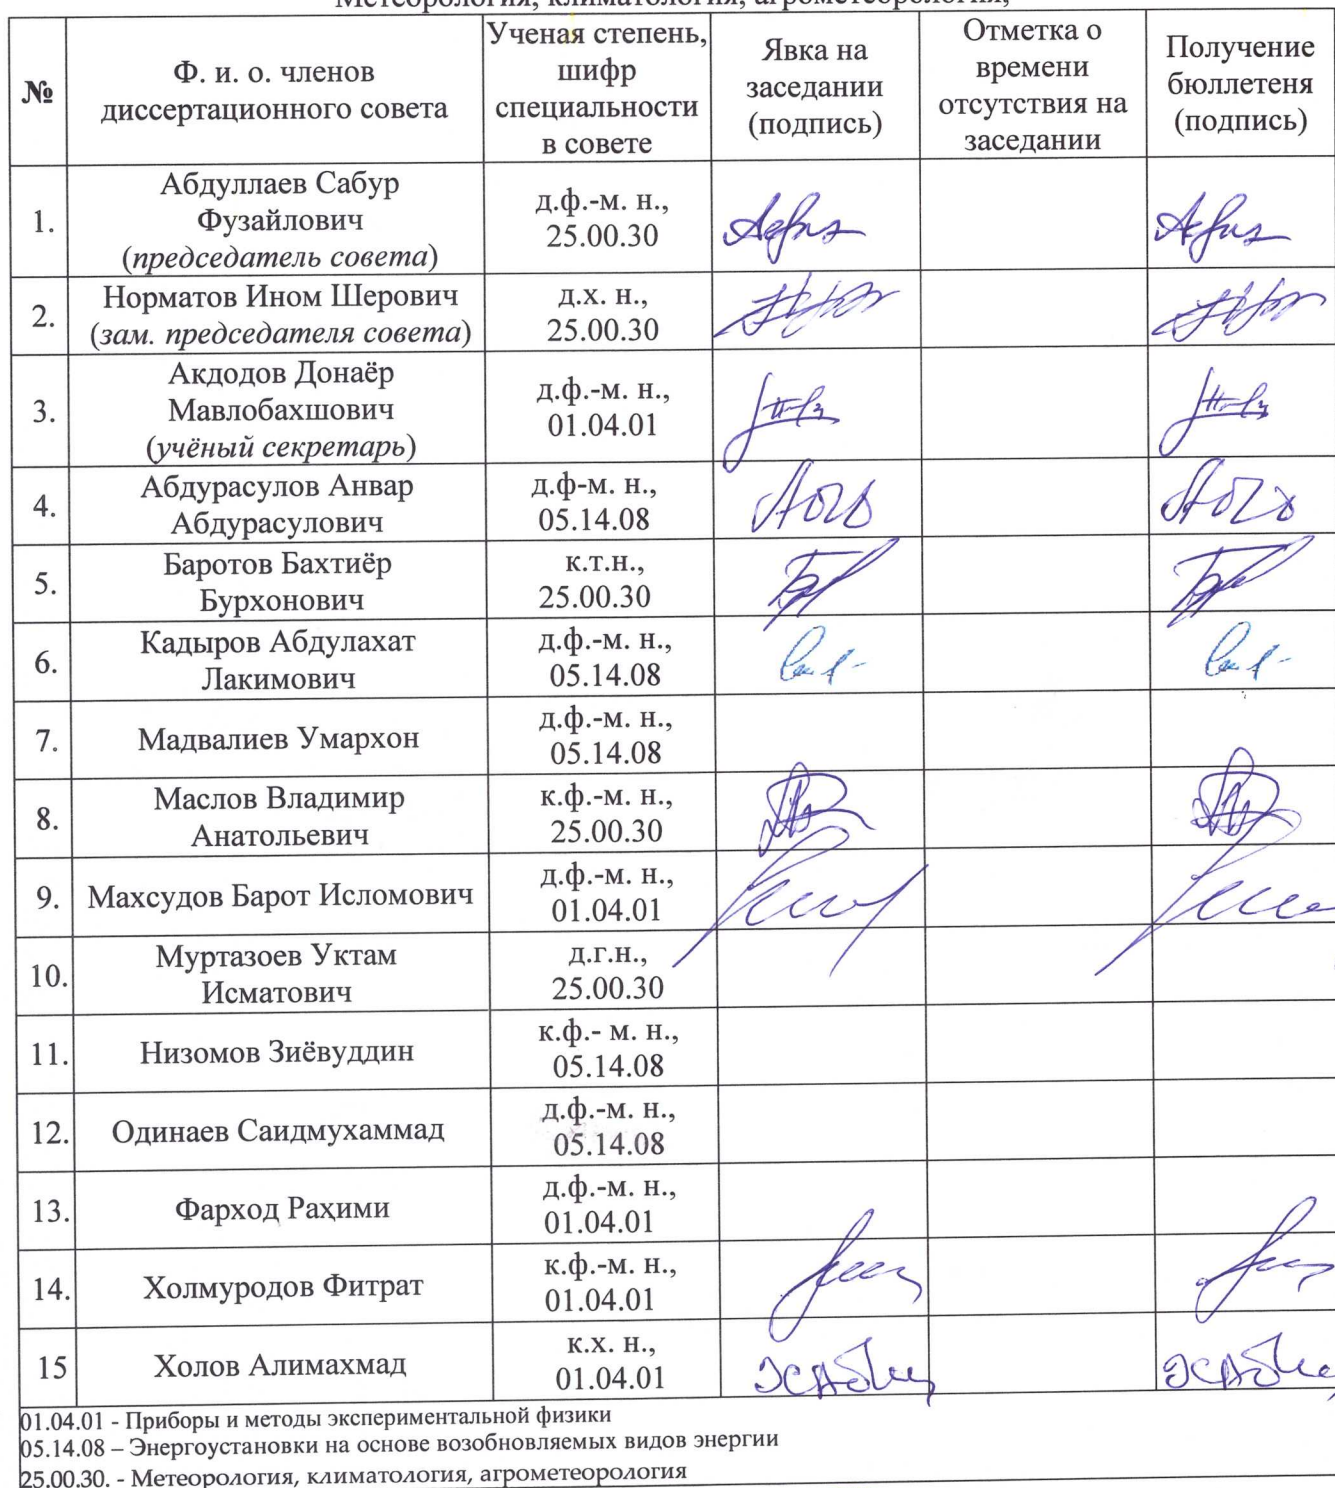 Метеорология, климатология, агрометеорология,
№
Ф. и. о. членов
диссертационного совета
Ученая степень,
шифр
специальности
в совете
Явка на
заседании
(подпись)
Отметка о
времени
отсутствия на
заседании
Получение
бюллетеня
(подпись)
1.
Абдуллаев Сабур
Фузайлович
(председатель совета)
д.ф.-м. н.,
25.00.30
2.
Норматов Ином Шерович
(зам. председателя совета)
д.х. н.,
25.00.30
3.
Акдодов Донаёр
Мавлобахшович
(учёный секретарь)
д.ф.-м. н.,
01.04.01
4.
Абдурасулов Анвар
Абдурасулович
д.ф-м. н.,
05.14.08
5.
Баротов Бахтиёр
Бурхонович
к.т.н.,
25.00.30
6.
Кадыров Абдулахат
Лакимович
д.ф.-м. н.,
05.14.08
7.
Мадвалиев Умархон
д.ф.-м. н.,
05.14.08
8.
Маслов Владимир
Анатольевич
к.ф.-м. н.,
25.00.30
9.
Махсудов Барот Исломович
д.ф.-м. н.,
01.04.01
10.
Муртазоев Уктам
Исматович
д.г.н.,
25.00.30
11.
Низомов Зиёвуддин
к.ф.- м. н.,
05.14.08
12.
Одинаев Саидмухаммад
д.ф.-м. н.,
05.14.08
13.
Фарход Раҳими
д.ф.-м. н.,
01.04.01
14.
Холмуродов Фитрат
к.ф.-м. н.,
01.04.01
15
Холов Алимахмад
к.х. н.,
01.04.01
01.04.01 - Приборы и методы экспериментальной физики
05.14.08 – Энергоустановки на основе возобновляемых видов энергии
25.00.30. - Метеорология, климатология, агрометеорология